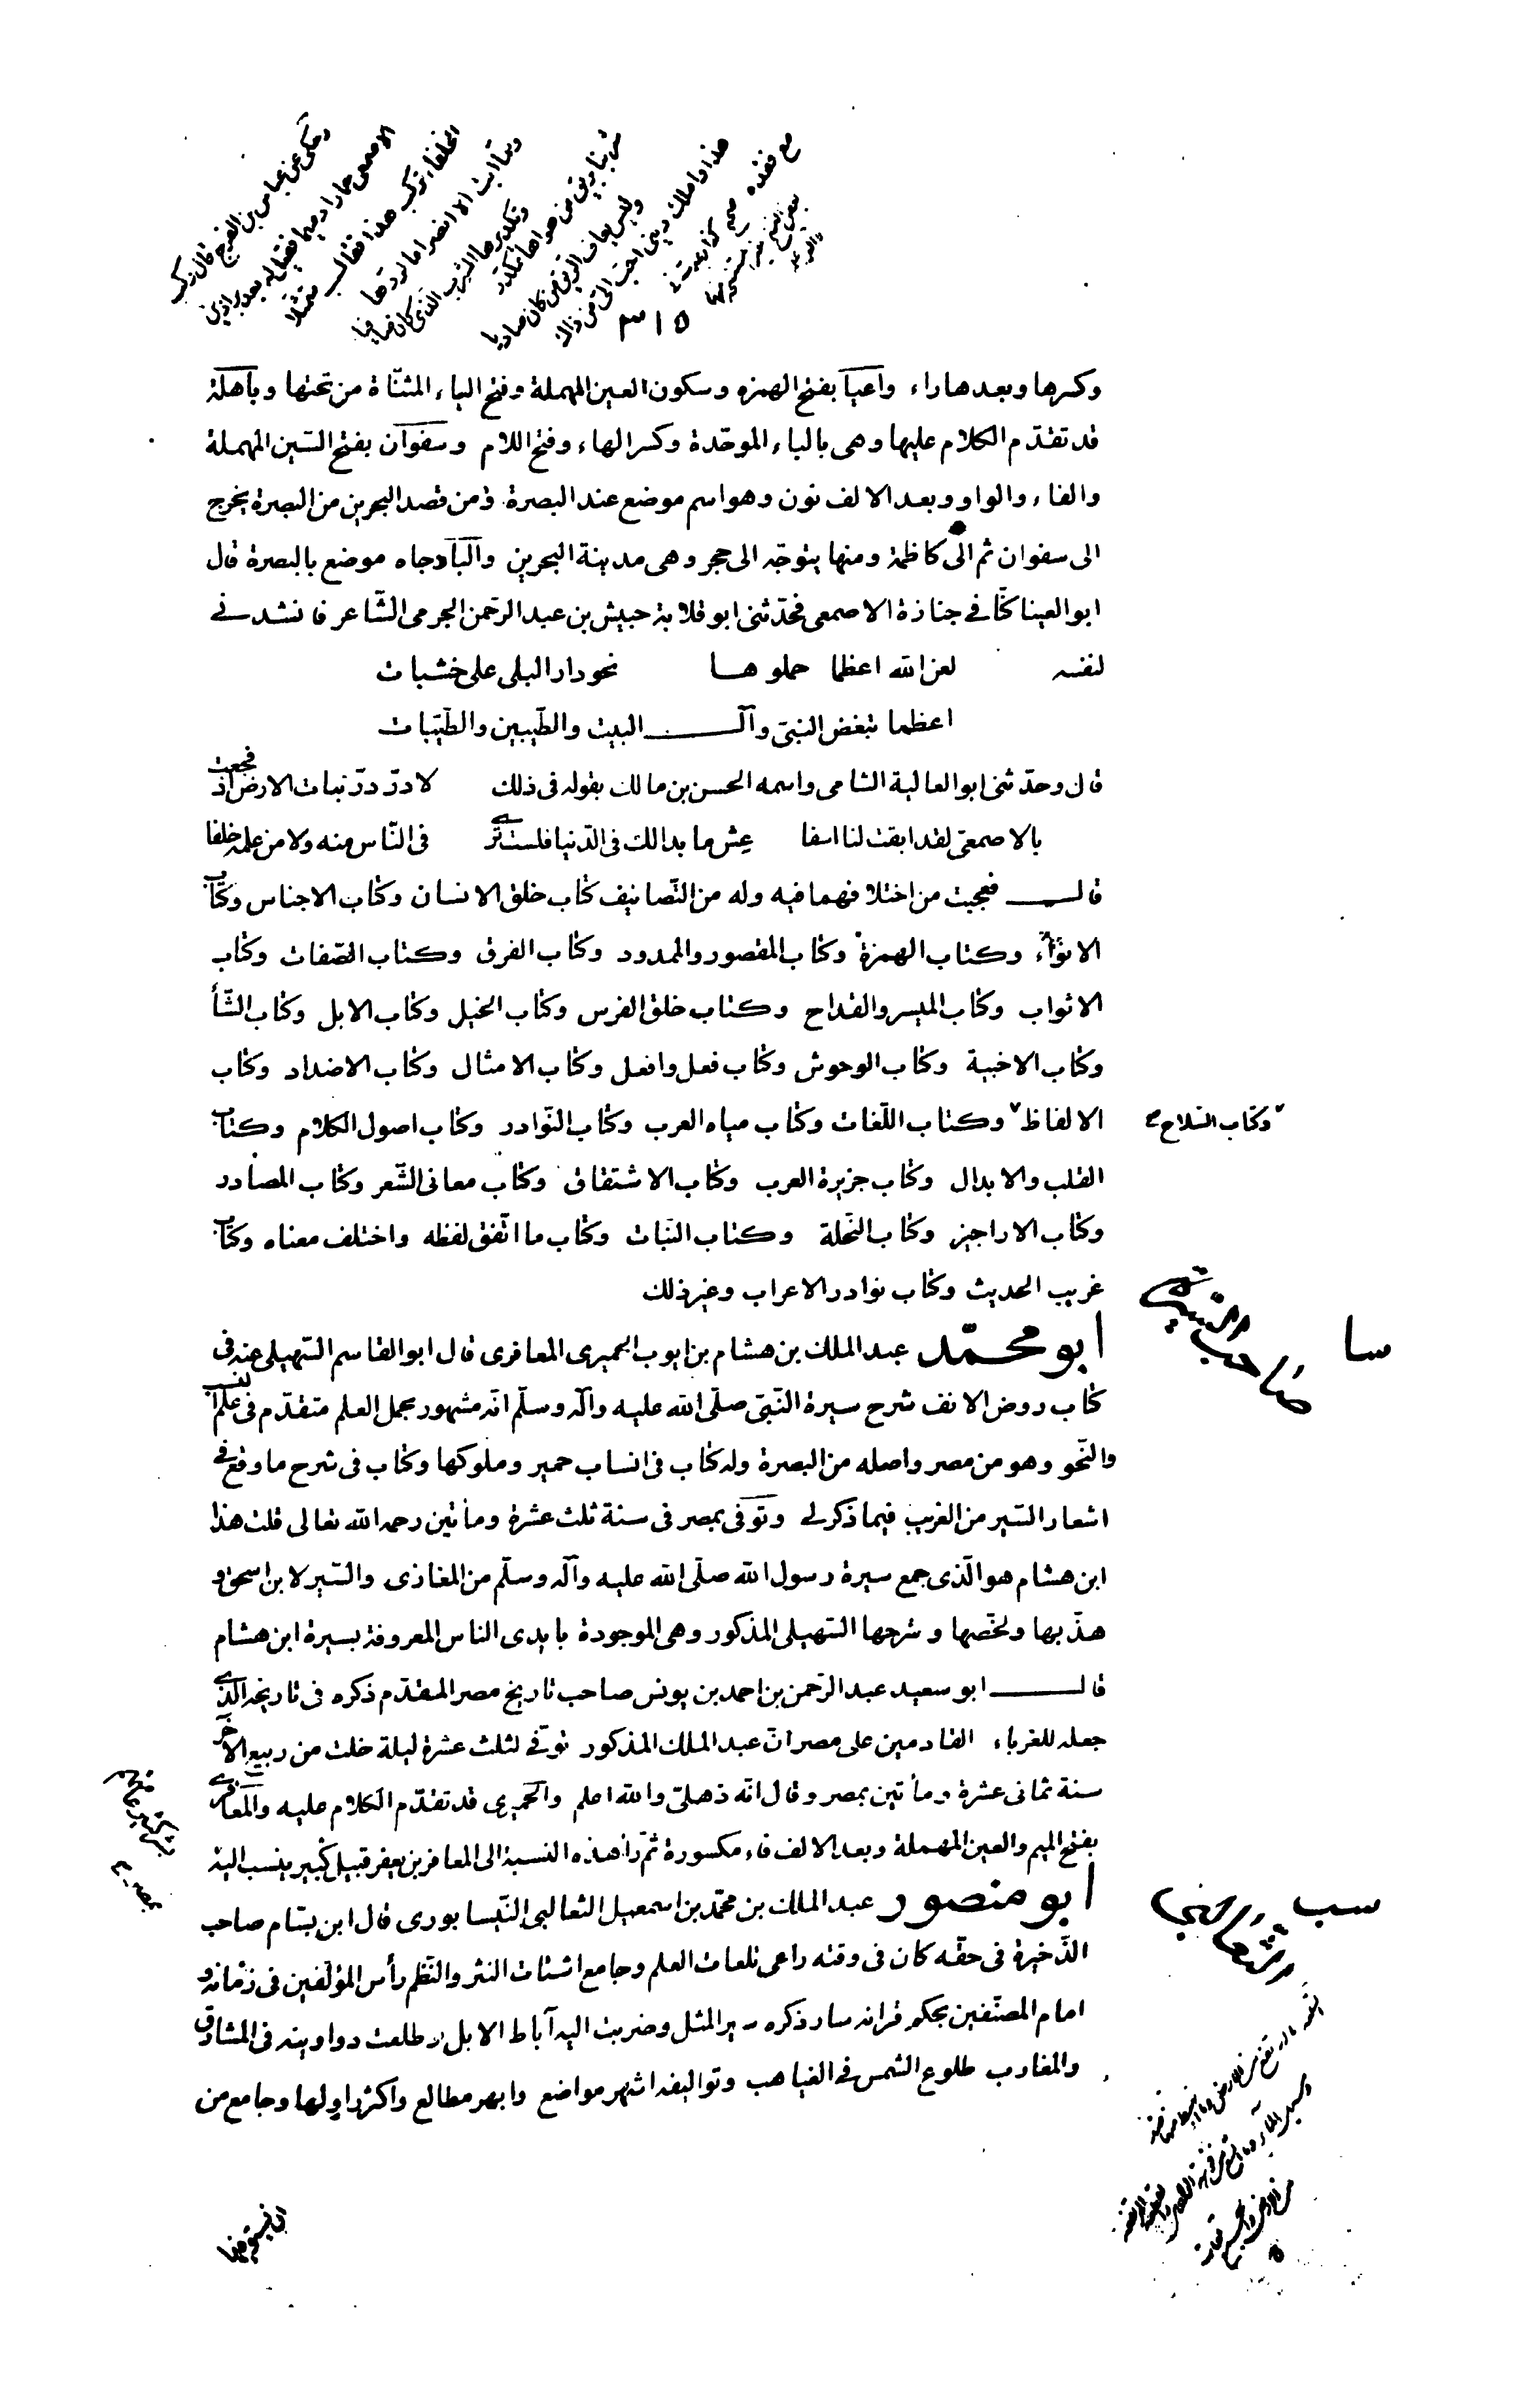 وحكى عن عباس بن الفرج قال ركب
الاصمعى حمارا دميما فقيل له بعد براذين
الخلفاء تركب هذا فقال متمثلا
ولما ابت الا انصراما لودها
وتكديرها الشرب الذى كان صافيا
شربنا برنق من هواها مكدر
وليس يعاف الرنق من كان صاديا
هذا واملك دينى احب الى من ذاك
مع فقده
وكسرها وبعدها راء واعيا بفتح الهمزه وسكون العين المهملة وفتح الياء المثنّاة من تحتها وباهلة
قد تقدّم الكلام عليها وهى بالباء الموحّدة وكسر الهاء وفتح اللام وسفوان بفتح السّين المهملة
والفاء والواو وبعد الالف نون وهو اسم موضع عند البصرة ومن قصد البحرين من البصرة يخرج
الى سفوان ثم الى كاظمة ومنها يتوجّه الى حجر وهى مدينة البحرين والبادجاه موضع بالبصرة قال
ابو العينا كنّا فى جنازة الاصمعى فحدّثنى ابو قلابة حبيش بن عبد الرحمن الجرمى الشّاعر فانشدنى
لنفسه لعن الله اعظما حملوها نحو دار البلى على خشبات
اعظما تبغض النبىّ وآل البيت والطّيبين والطّيّبات
قال وحدّثنى ابو العالية الشامى واسمه الحسن بن مالك بقوله فى ذلك لا درّ درّ نبات الارض اذ فجعت
بالاصمعىّ لقد ابقت لنا اسفا عش ما بدالك فى الدّنيا فلست ترى فى النّاس منه ولا من علمه خلفا
قال فعجبت من اختلافهما فيه وله من التّصانيف كتاب خلق الانسان وكتاب الاجناس وكتاب
الانوآء وكتاب الهمزة وكتاب المقصور والممدود وكتاب الفرق وكتاب الصّفات وكتاب
الاثواب وكتاب الميسر والقداح وكتاب خلق الفرس وكتاب الخيل وكتاب الابل وكتاب الشّأ
وكتاب الاخبية وكتاب الوحوش وكتاب فعل وافعل وكتاب الامثال وكتاب الاضداد وكتاب
الالفاظ وكتاب اللّغات وكتاب مياه العرب وكتاب النّوادر وكتاب اصول الكلام وكتاب
وكتاب السّلاح
القلب والابدال وكتاب جزيرة العرب وكتاب الاشتقاق وكتاب معانى الشّعر وكتاب المصادر
وكتاب الاراجيز وكتاب النّحلة وكتاب النّبات وكتاب ما اتّفق لفظه واختلف معناه وكتاب
غريب الحديث وكتاب نوادر الاعراب وغير ذلك
سا
صاحب السيرة
أبو محمّد عبد الملك بن هشام بن ايوب الحميرى المعافرى قال ابو القاسم السّهيلى عنه فى
كتاب روض الانف شرح سيرة النّبىّ صلّى الله عليه وآله وسلّم انّه مشهور بحمل العلم متقدّم فى علم النسب
والنّحو وهو من مصر واصله من البصرة وله كتاب فى انساب حمير وملوكها وكتاب فى شرح ما وقع فى
اشعار السّير من الغريب فيما ذكر لى وتوفى بمصر فى سنة ثلث عشرة ومأتين رحمه الله تعالى قلت هذا
ابن هشام هو الّذى جمع سيرة رسول الله صلّى الله عليه وآله وسلّم من المغازى والسّير لابن اسحق و
هذّبها ولخّصها وشرحها السّهيلى المذكور وهى الموجودة بايدى الناس المعروفة بسيرة ابن هشام
قال ابو سعيد عبد الرّحمن بن احمد بن يونس صاحب تاريخ مصر المقدّم ذكره فى تاريخه الّذى
جعله للغرباء القادمين على مصر انّ عبد الملك المذكور توفّى لثلث عشرة ليلة خلت من ربيع الآخر
سنة ثمانى عشرة ومأتين بمصر وقال انّه ذهلىّ والله اعلم والحميرى قد تقدّم الكلام عليه والمعافرى
بفتح الميم والعين المهملة وبعد الالف فاء مكسورة ثمّ راء هذه النسبة الى المعافر بن يعفر قبيل كبير ينسب اليه
سب
الثعالبى
أبو منصور عبد الملك بن محمّد بن اسمعيل الثعالبى النّيسابورى قال ابن بسّام صاحب
الذّخيرة فى حقّه كان فى وقته راعى تلعات العلم وجامع اشتات النثر والنّظم رأس المؤلّفين فى زمانه و
امام المصنّفين بحكم قرانه سار ذكره سير المثل وضربت اليه آباط الابل وطلعت دواوينه فى المشارق
والمغارب طلوع الشمس فى الغياهب وتواليفه اشهر مواضع وابهر مطالع واكثر راو لها وجامع من